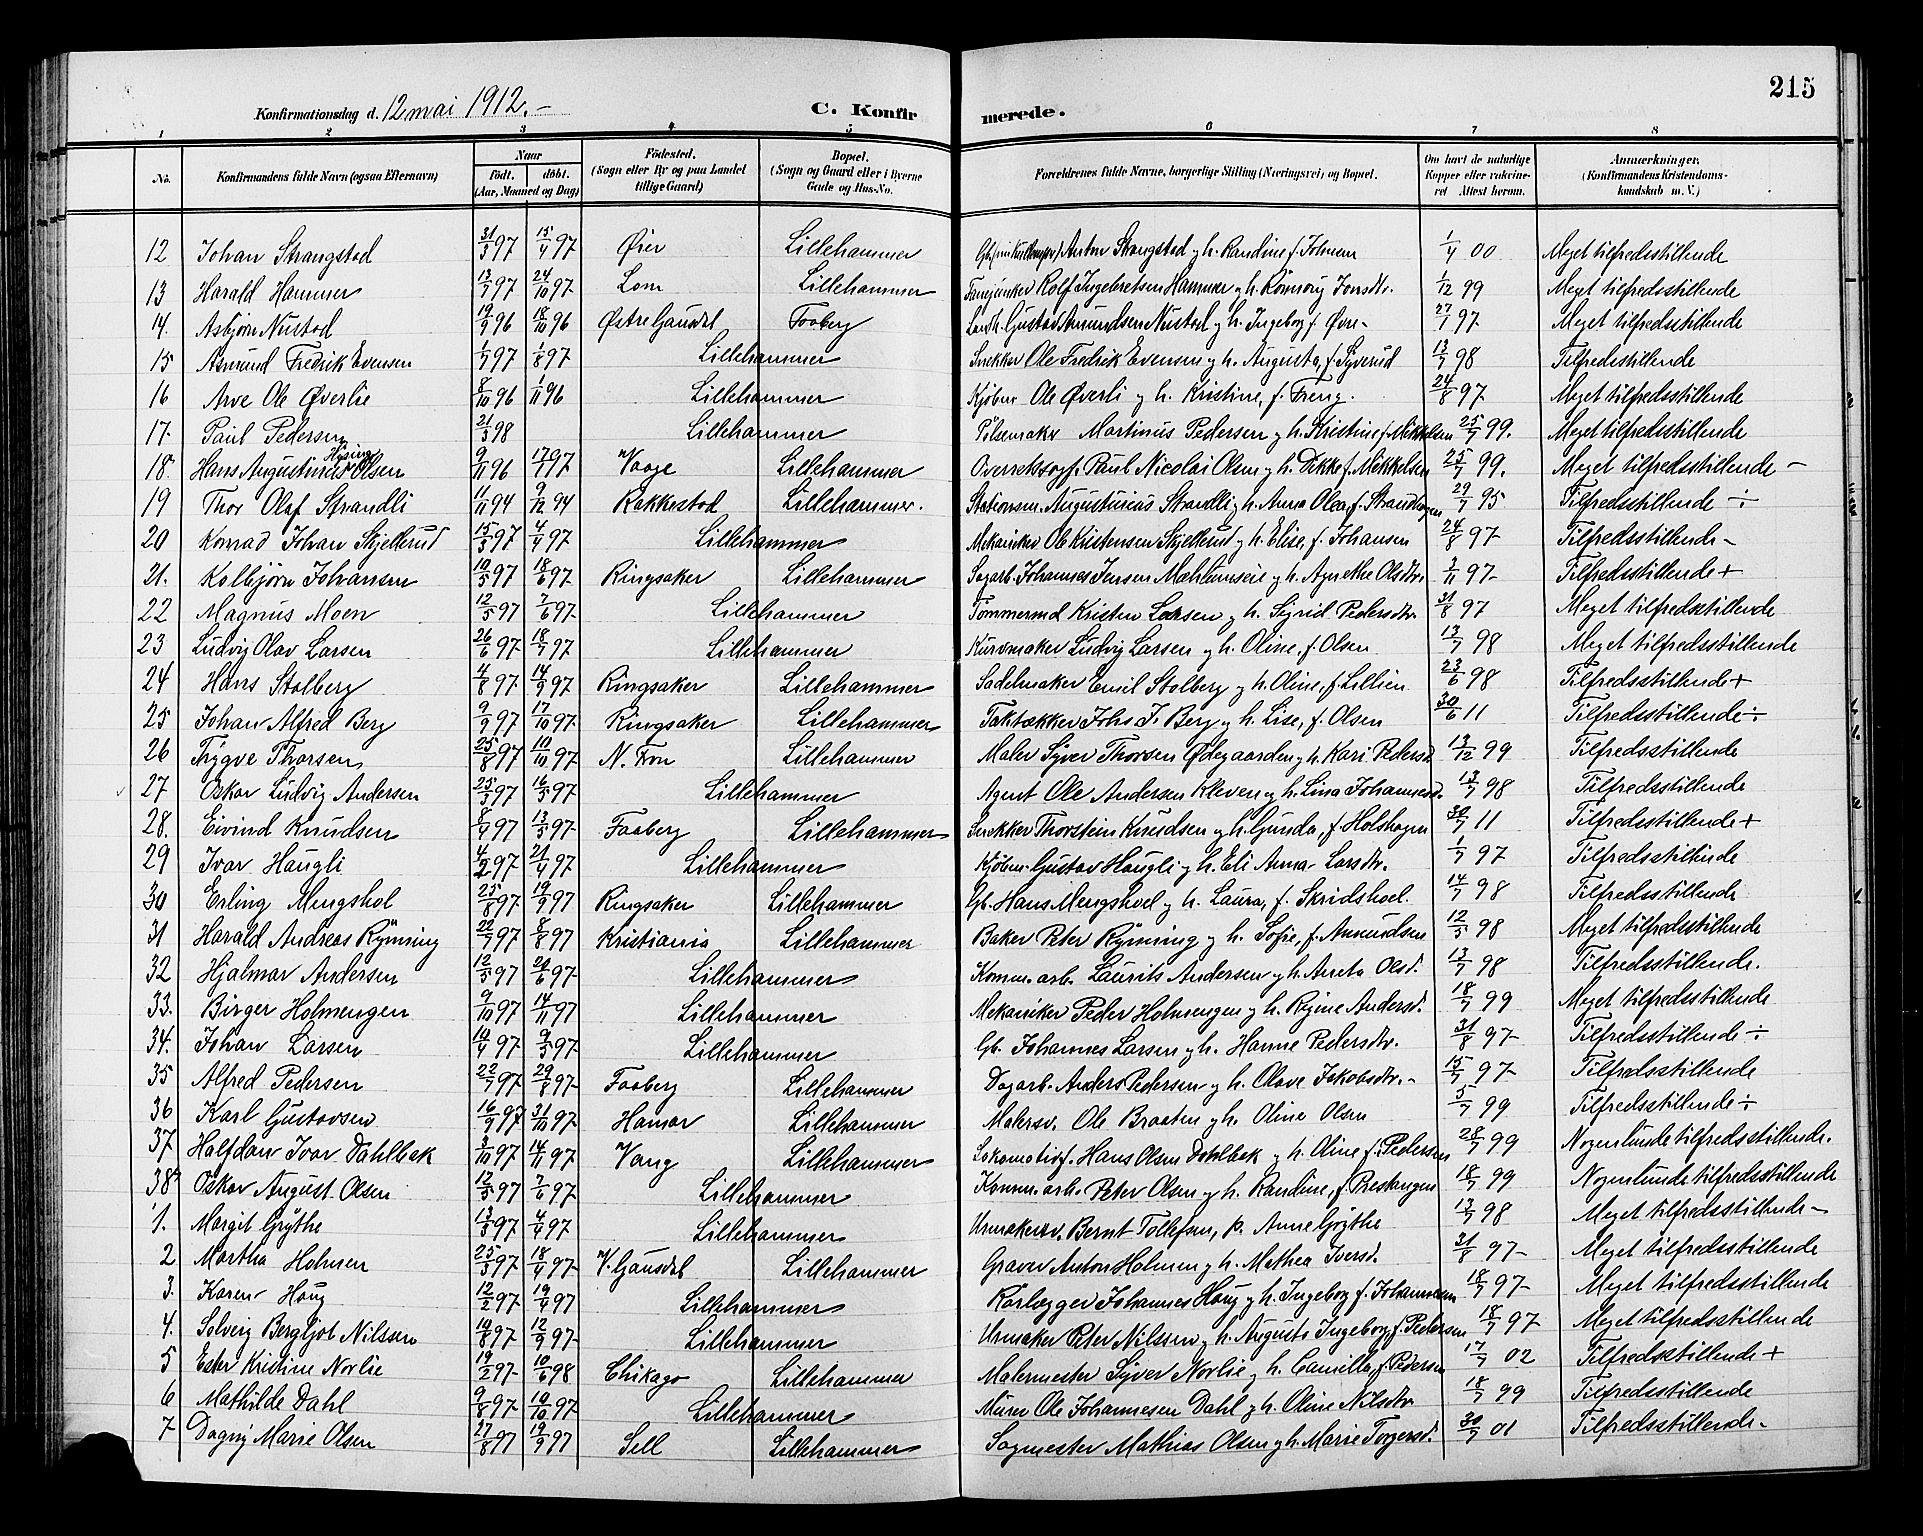 215
Konfirmationsdag d. 12 mai 1912.-
C. Konfirmerede.
1 2 3 4 5 6 7 8
No. Konfirmandens fulde Navn (ogsaa Efternavn) Naar født. døbt. (Aar, Maaned og Dag) Fødested. (Sogn eller By og paa Landet tillige Gaard) Bopæl. (Sogn og Gaard eller i Byerne Gade og Hus-No. Forældrenes fulde Navne, borgerlige Stilling (Næringsvei) og Bopæl. Om havt de naturlige Kopper eller vakcineret Attest herom. Anmærkninger. (Konfirmandens Kristendomskundskab m. V.)
12 Johan Strangstad 31/3 97 15/4 97 Øier Lillehammer Anton Strangstad og h. Randine f. Johnsen 1/4 00 Meget tilfredsstillende
13 Harald Hammer 13/7 97 24/10 97 Lom Lillehammer Fanejunker Rolf Ingebretsen Hammer og h. Rønnøug Jonsdtr. 1/12 99 Meget tilfredsstillende
14. Asbjørn Nustad 19/9 96 18/10 96 Østre Gausdal Faaberg Landh. Gustav Amundsen Nustad og h. Ingeborg f. Øvre- 27/1 97 Meget tilfredsstillende
15 Asmund Fredrik Evensen 1/7 97 1/8 97 Lillehammer Snekker Ole Fredrik Evensen og h. Augusta, f. Syverud 13/7 98 Tilfredsstillende
16 Arve Ole Øverlie 8/10 96 1/11 96 Lillehammer Kjøbm. Ole Øverli og h. Kristine, f. Freng. 24/8 97. Meget tilfredsstillende
17. Paul Pedersen 21/3 98 Lillehammer Pølsemaker Martinus Pedersen og h. Kristine f. Mikkelsen 25/7 99. Meget tilfredsstillende
18. Hans Augustinus Hysing Olsen 9/11 96 17/1 97 Vaage Lillehammer Overretssagf. Paul Nicolai Olsen og h. Dikke f. Mikkelsen 25/7 99. Meget tilfredsstillende -
19 Thor Olaf Strandli 11/11 94 9/12 94 Rakkestad Lillehammer. Stationsm. Augustinius Strandli og h. Anna Olea, f. Strandhagen 29/7 95 Tilfredsstillende ÷
20 Konrad Johan Skjellerud 15/3 97 4/4 97 Lillehammer Mekaniker Ole Kristensen Skjellerud og h. Elise, f. Johansen 24/8 97 Tilfredsstillende -
21. Kolbjørn Johansen 10/5 97 18/6 97 Ringsaker Lillehammer Sagarb. Johannes Jensen Mæhlumseie og h. Agnethe Olsdtr. 3/11 97- Tilfredsstillende +
22 Magnus Moen 12/5 97 7/6 97. Lillehammer Tømmermd Kristen Larsen og h. Sigrid Pedersdtr. 31/8 97 Meget tilfredsstillende
23 Ludvig Olav Larsen 26/6 97 18/7 97. Lillehammer Kurvmaker Ludvig Larsen og h. Oline, f. Olsen 13/7 98 Meget tilfredsstillende
24 Hans Stolberg 4/8 97- 14/9 97. Ringsaker Lillehammer Sadelmaker Emil Stolberg og h. Oline, f. Lillien 23/6 98 Tilfredsstillende +
25 Johan Alfred Berg 9/9 97 17/10 97. Ringsaker Lillehammer Taktækker Johs J. Berg og h. Lise, f. Olsen 30/6 11 Tilfredsstillende ÷
26 Trygve Thorsen 25/8 97 10/10 97. N. Fron Lillehammer Maler Syver Thorsen Ødegaarden og h. Kari Pedersd. 13/12 99 Tilfredsstillende
27 Oskar Ludvig Andersen 25/3 97 16/5 97. Lillehammer Agent Ole Andersen Kleven og h. Lina Johannesd. 13/7 98 Tilfredsstillende
28. Eivind Knudsen 8/4 97 13/5 97. Faaberg Lillehammer Snekker Thorstein Knudsen og h. Gunda, f. Holshagen 30/7 11 Tilfredsstillende +
29 Ivar Haugli 4/2 97 21/4 97 Lillehammer Kjøbm. Gustav Haugli og h. Eli Anna Larsdtr. 1/7 97 Tilfredsstillende
30 Erling Mengshol 25/8 97 19/9 97 Ringsaker Lillehammer Gb. Hans Mengshoel og h. Laura, f. Skridshoel. 14/7 98 Tilfredsstillende
31 Harald Andreas Rymning 22/7 97 8/8 97 Kristiania Lillehammer Baker Peter Rymning og h. Sofie, f. Amundsen 12/5 98 Meget tilfredsstillende
32 Hjalmar Andersen 12/5 97 20/6 97. Lillehammer Komm. arb. Laurits Andersen og h. Aneta Olsd. 13/7 98 Tilfredsstillende.
33. Birger Holmengen 9/10 97 14/11 97 Lillehammer Mekaniker Peder Holmengen og h. Regine Andersd. 18/7 99 Meget tilfredsstillende
34. Johan Larsen 10/4 97 9/5 97. Lillehammer Gb. Johannes Larsen og h. Hanne Pedersdtr. 31/8 97- Tilfredsstillende ÷
35 Alfred Pedersen 22/7 97 29/8 97- Faaberg Lillehammer Dagarb. Anders Pedersen og h. Olave Jakobsdtr. - 15/7 97- Tilfredsstillende
36 Karl Gustavsen 16/9 97 31/10 97 Hamar Lillehammer Malersv. Ole Braaten og h. Oline Olsen 5/7 99 Tilfredsstillende ÷
37 Halfdan Ivar Dahlbak 3/10 97 14/11 97 Vang Lillehammer Lokomotivf. Hans Olsen Dahlbak og h. Oline f. Pedersen 28/7 99 Nogenlunde tilfredsstillende.
38 Oskar August Olsen 12/5 97 7/6 97. Lillehammer Komm. arb. Peter Olsen og h. Randine, f. Prestangen 18/7 99 Nogenlunde tilfredsstillende
1. Margit Grythe 13/3 97 4/4 97. Lillehammer Urmakersv. Bernt Tollefsen, p. Anne Grythe 13/7 98 Meget tilfredsstillende -
2 Martha Holmen 25/3 97 18/4 97. V. Gausdal Lillehammer Graver Anton Holmen og h. Mathea Iversd. 31/8 97- Meget tilfredsstillende
3. Karen Haug 12/2 97 19/4 97 Lillehammer Rørlægger Johannes Haug og h. Ingeborg f. Johannesen 18/7 97- Meget tilfredsstillende
4. Solveig Bergljot Nilssen 10/8 97- 12/9 97- Lillehammer Urmaker Peter Nilssen og h. Augusta Ingeborg f. Pedersen 18/7 97 Meget tilfredsstillende
5 Ester Kristine Norlie 19/2 97- 10/6 98 Chikago Lillehammer Malermester Syver Norlie og h. Camilla, f. Pedersen 17/7 02 Tilfredsstillende +
6 Mathilde Dahl 9/8 97 10/10 97. Lillehammer Murer Ole Johannesen Dahl og h. Oline Nilsdtr 18/7 99 Tilfredsstillende
7 Dagny Marie Olsen 27/8 97 19/9 97 Sell Lillehammer Sagmester Mathias Olsen og h. Marie Torgersd. 30/7 01 Tilfredsstillende -